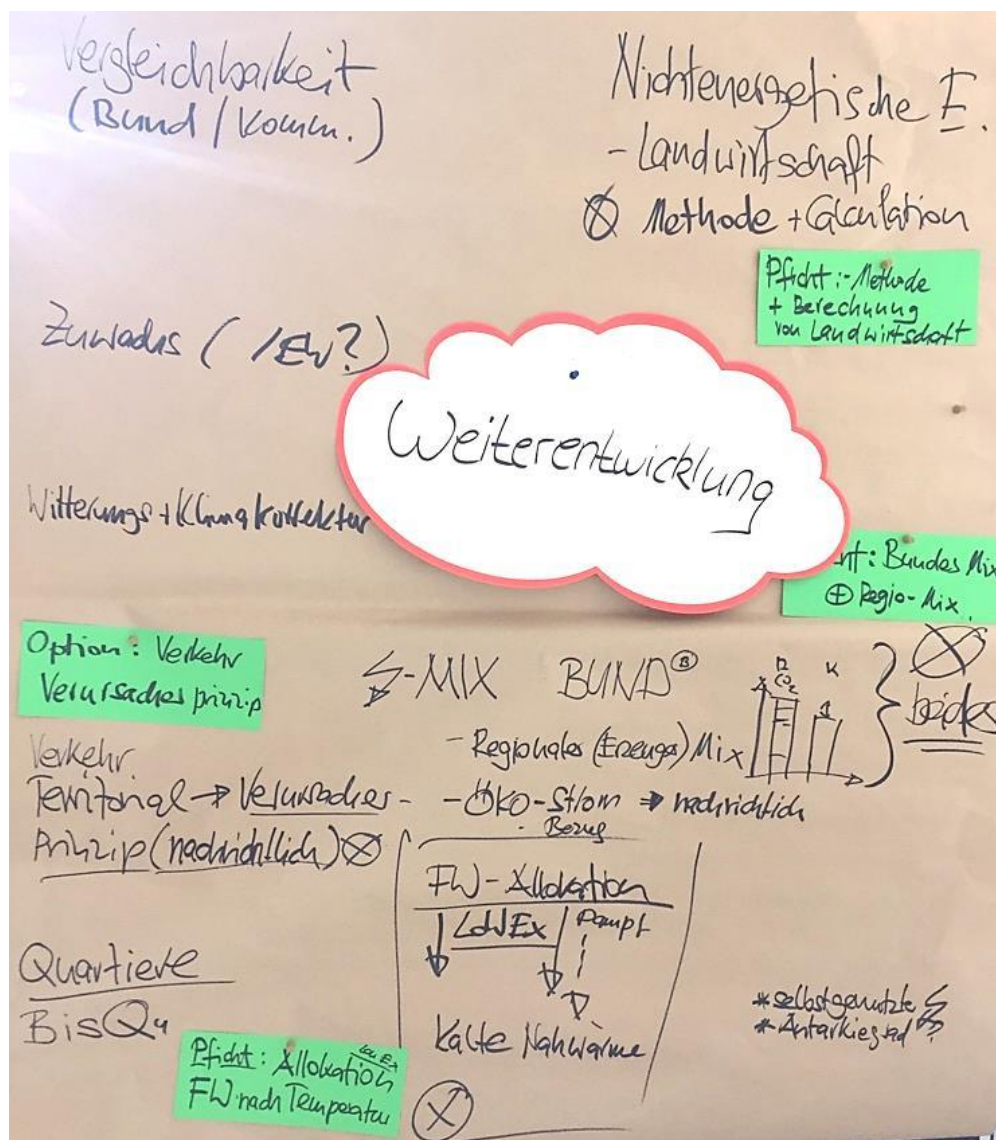 Vergleichbarkeit
(Bund / Komm.)
Nichtenergetische E.
- Landwirtschaft
Methode + Calculation
Pficht: - Methode
+ Berechnung
von Landwirtschaft
Zuwachs ( /EW?)
Weiterentwicklung
Witterungs + Klimakorrektur
nt: Bundes Mix
⊕ Regio-Mix
Option: Verkehr
Verursacherprinzip
-MIX BUND Ⓑ
- Regionales (Erzeuger) Mix
CO2
K
beides
- ÖKO-Strom ⇒ nachrichtlich
Bezug
Verkehr
Territorial → Verursacher-
Prinzip (nachrichtlich)
FW-Allokation
LowEx
Dampf
Kalte Nahwärme
Quartiere
BisQu
Pficht: Allokation
FW nach Temperatur
* selbstgenutzte
* Autarkiegrad ?